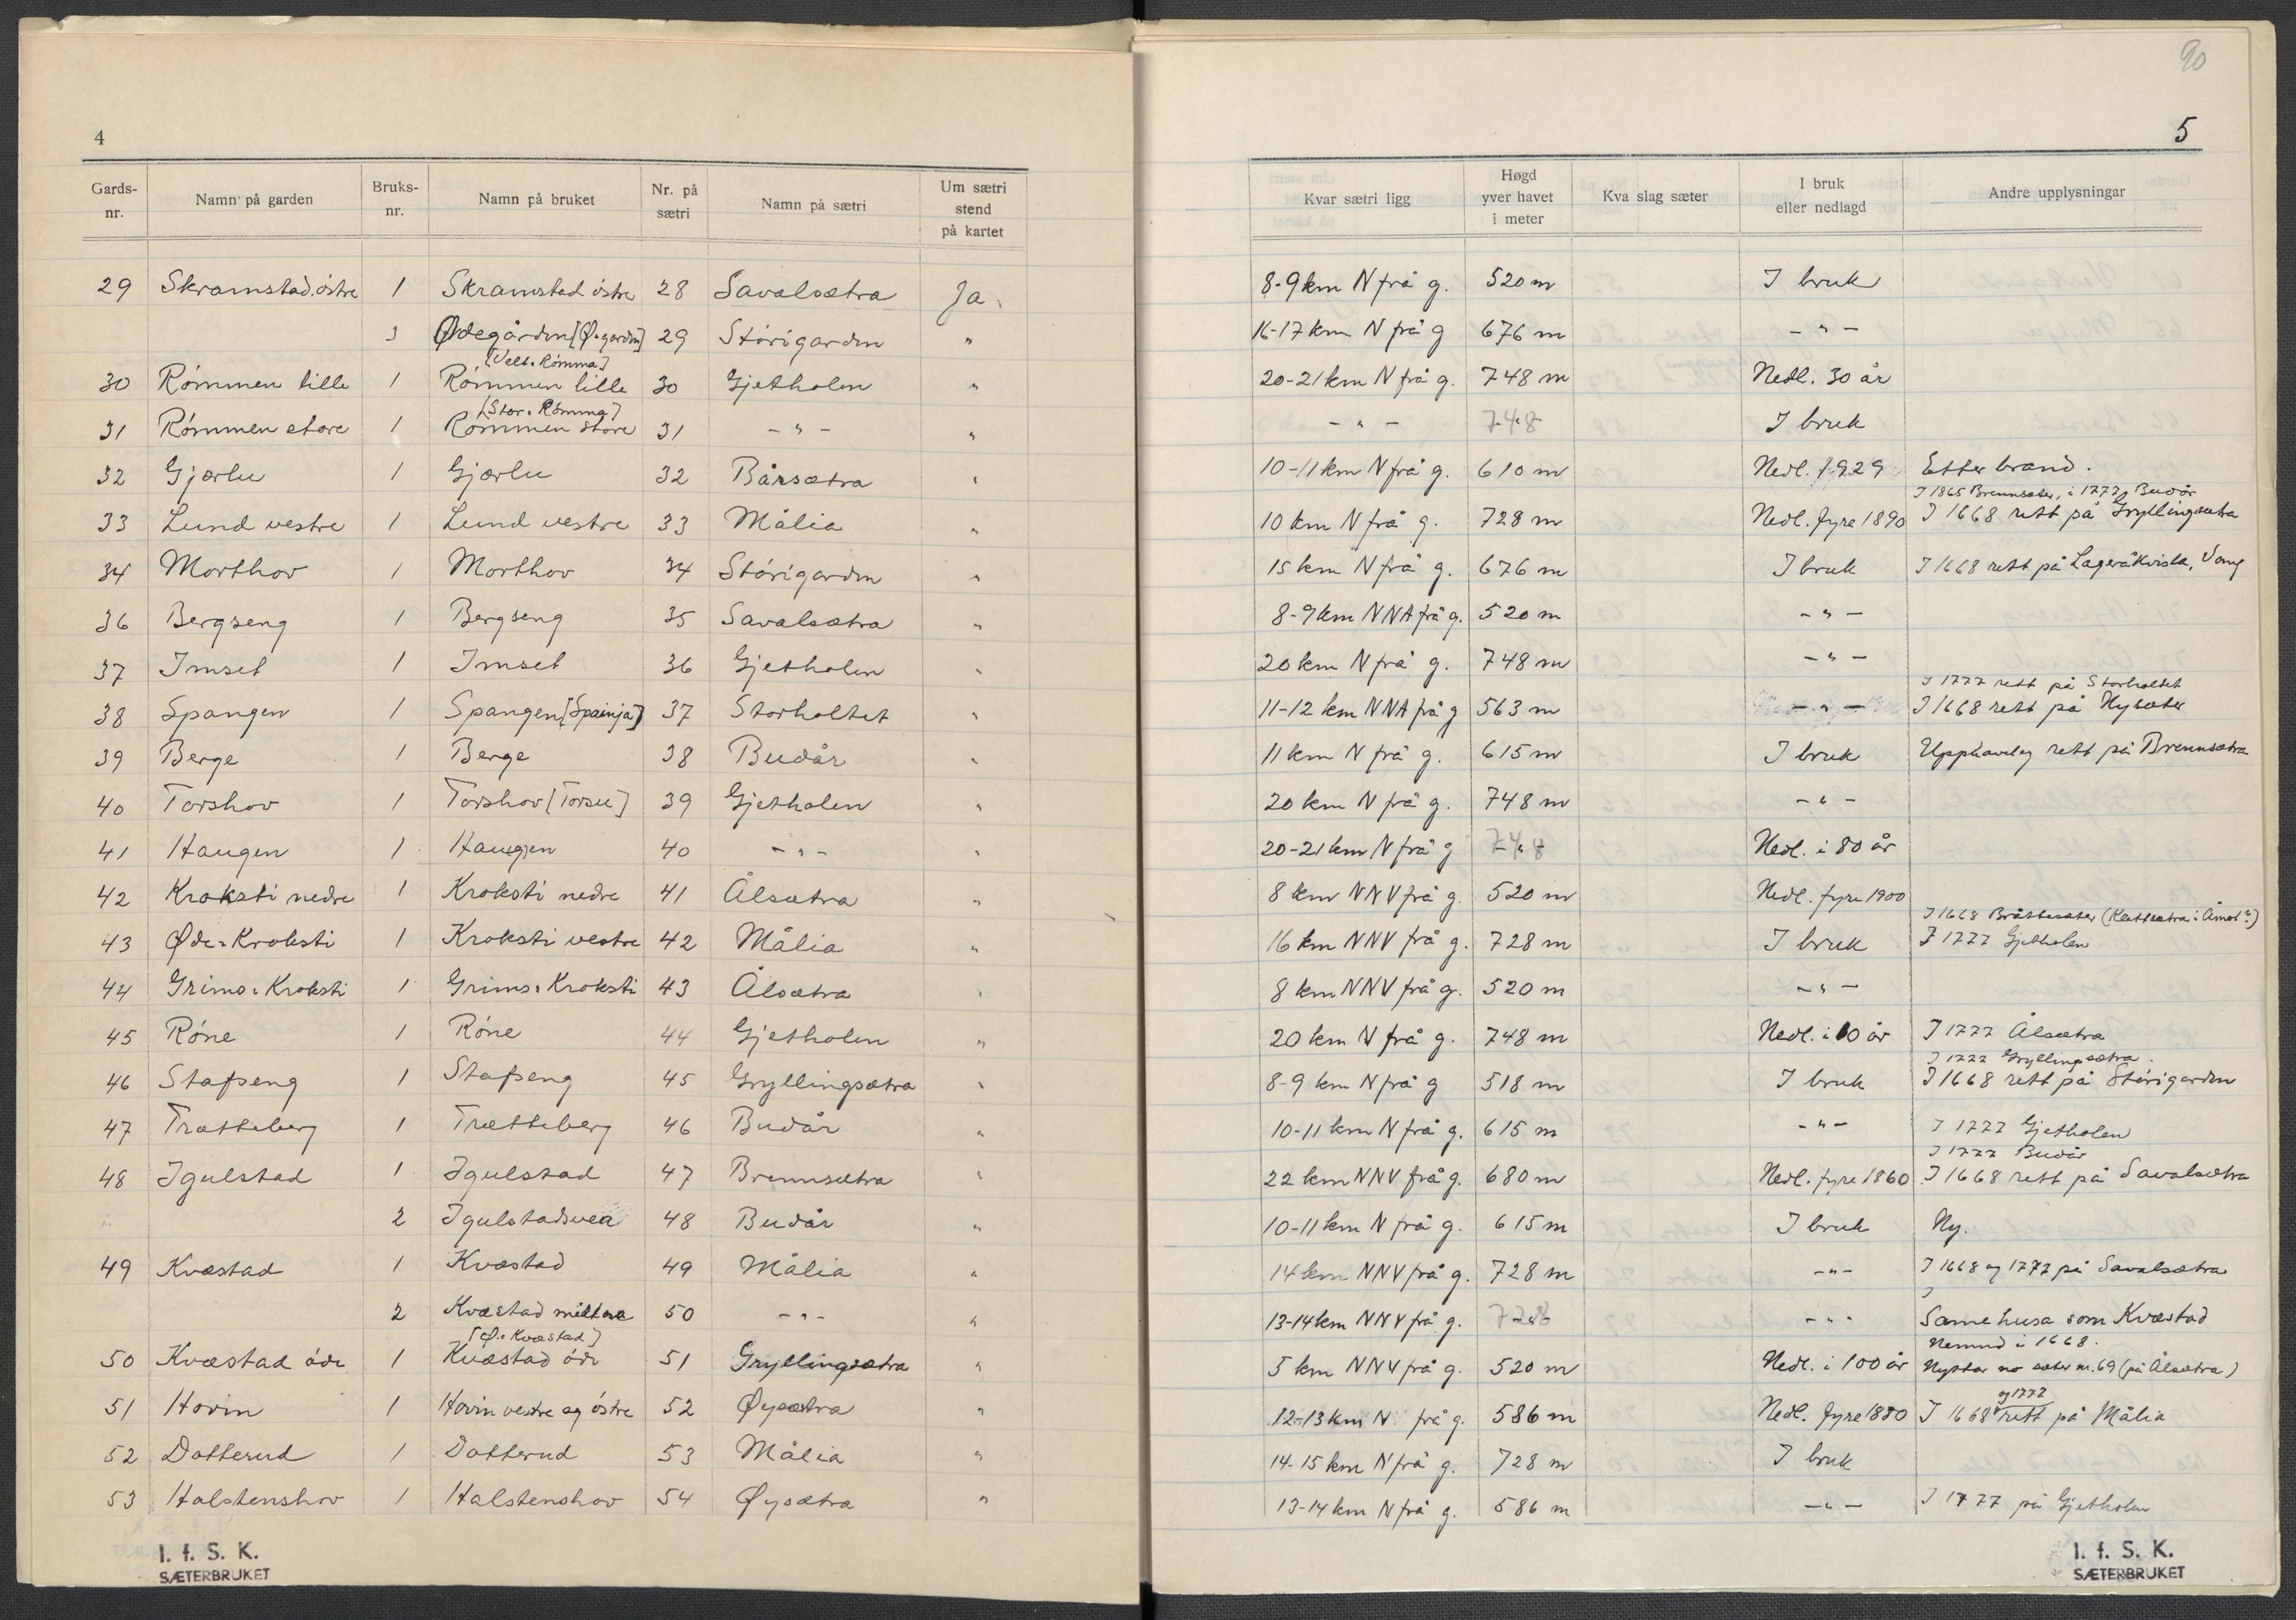 4
Gards-nr. Namn på garden Bruks-nr. Namn på bruket Nr. på sætri Namn på sætri Um sætri stend på kartet
29 Skramstad, østre 1 Skramstad østre 28 Savalsætra Ja.
3 Ødegården [Ø.garden] 29 Stórigarden "
[Vetl-Rømma]
30 Rømmen lille 1 Rømmen lille 30 Gjetholen "
[Stor-Rømma]
31 Rømmen store 1 Rømmen store 31 - " - "
32 Gjærlu 1 Gjærlu 32 Bårsætra "
33 Lund vestre 1 Lund vestre 33 Målia "
34 Morthov 1 Morthov 34 Stórigarden "
36 Bergseng 1 Bergseng 35 Savalsætra "
37 Imset 1 Imset 36 Gjetholen "
38 Spangen 1 Spangen [Spainja] 37 Storholtet "
39 Berge 1 Berge 38 Budår "
40 Torshov 1 Torshov [Torsu] 39 Gjetholen "
41 Haugen 1 Haugen 40 - " - "
42 Kroksti nedre 1 Kroksti nedre 41 Ålsætra "
43 Øde-Kroksti 1 Kroksti vestre 42 Målia "
44 Grims-Kroksti 1 Grims-Kroksti 43 Ålsætra "
45 Røne 1 Røne 44 Gjetholen "
46 Stafseng 1 Stafseng 45 Gryllingsætra "
47 Trætteberg 1 Trætteberg 46 Budår "
48 Igulstad 1 Igulstad 47 Brennsætra "
2 Igulstadsvea 48 Budår "
49 Kvæstad 1 Kvæstad 49 Målia "
2 Kvæstad mellom 50 - " - "
[Ø-Kvæstad]
50 Kvæstad óde 1 Kvæstad óde 51 Gryllingsætra "
51 Hovin 1 Hovin vestre og østre 52 Øysætra "
52 Dotterud 1 Dotterud 53 Målia "
53 Halstenshov 1 Halstenshov 54 Øysætra "
I. f. S. K.
SÆTERBRUKET
90
5
Kvar sætri ligg Høgd yver havet i meter Kva slag sæter I bruk eller nedlagd Andre upplysningar
8-9 km N frå g. 520 m I bruk
16-17 km N frå g 676 m - " -
20-21 km N frå g. 748 m Nedl. 30 år
- " - 748 I bruk
10-11 km N frå g. 610 m Nedl. 1929 Etter brand.
I 1865 Brennsæter, i 1777 Budår
10 km N frå g. 728 m Nedl. fyre 1890 I 1668 rett på Gryllingsætra
15 km N frå g. 676 m I bruk I 1668 rett på Lageråkvisla, Vang
8-9 km NNA frå g. 520 m - " -
20 km N frå g. 748 m - " -
I 1777 rett på Storholtet
11-12 km NNA frå g 563 m - " - I 1668 rett på Nysæter
11 km N frå g. 615 m I bruk Upphavleg rett på Brennsætra
20 km N frå g. 748 m - " -
20-21 km N frå g 748 Nedl. i 80 år
8 km NNV frå g. 520 m Nedl. fyre 1900
I 1668 Bråttesæter (Kattsætra i Åmot?)
16 km NNV frå g. 728 m I bruk I 1777 Gjetholen
8 km NNV frå g. 520 m - " -
20 km N frå g. 748 m Nedl. i 10 år I 1777 Ålsætra
I 1777 Gryllingsætra.
8-9 km N frå g 518 m I bruk I 1668 rett på Stórigarden
10-11 km N frå g. 615 m - " - I 1777 Gjetholen
I 1777 Budår
22 km NNV frå g. 680 m Nedl. fyre 1860 I 1668 rett på Savalsætra
10-11 km N frå g. 615 m I bruk Ny.
14 km NNV frå g. 728 m - " - I 1668 og 1777 på Savalsætra
13-14 km NNV frå g. 728 - " - Same husa som Kvæstad
Nemnd i 1668.
5 km NNV frå g. 520 m Nedl. i 100 år Nyttar no sæter nr. 69 (på Ålsætra)
og 1777
12-13 km N frå g. 586 m Nedl. fyre 1880 I 1668 rett på Målia
14-15 km N frå g. 728 m I bruk
13-14 km N frå g. 586 m - " - I 1777 på Gjetholen
I. f. S. K.
SÆTERBRUKET